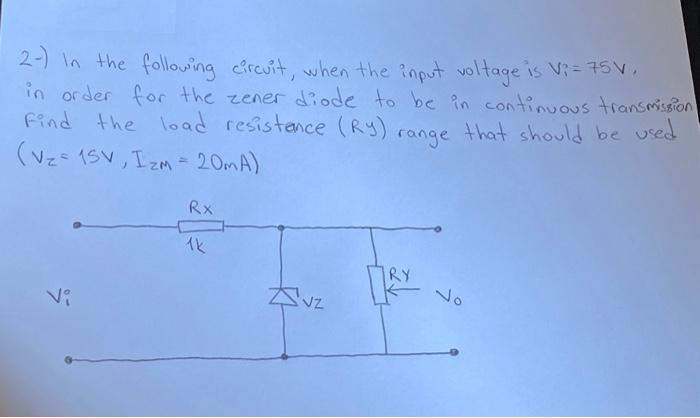 2-) In the following circuit, when the input voltage is Vi = 75V,
in order for the zener diode to be in continuous transmission
Find the load resistance (RY) range that should be used
(Vz = 15V, IZM = 20mA)
Rx
1k
RY
Vi
VZ
Vo